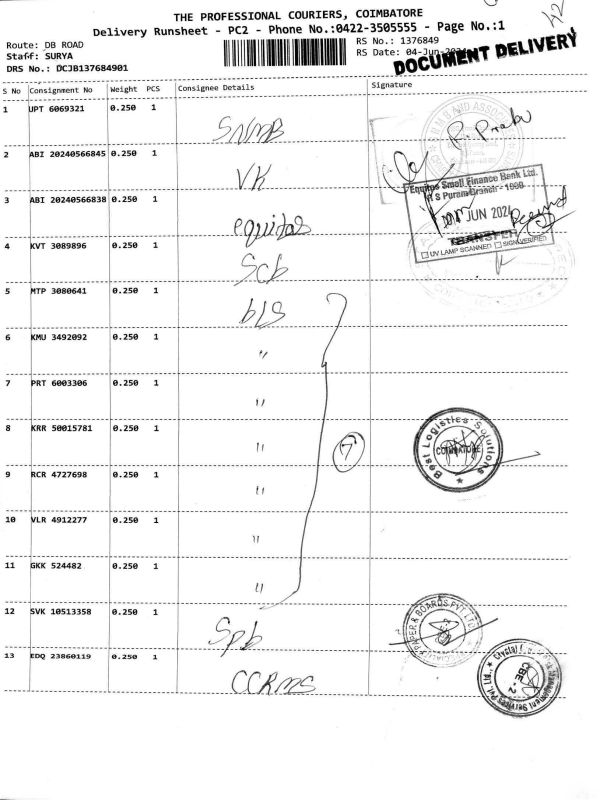 THE PROFESSIONAL COURIERS, COIMBATORE
Delivery Runsheet - PC2 - Phone No.:0422-3505555 - Page No.:1
Route: DB ROAD
Staff: SURYA
DRS No.: DCJB137684901
RS No.: 1376849
RS Date: 04-Jun-2024
DOCUMENT DELIVERY
S No Consignment No Weight PCS Consignee Details Signature
1 UPT 6069321 0.250 1
2 ABI 20240566845 0.250 1 VK
3 ABI 20240566838 0.250 1 equitas
4 KVT 3089896 0.250 1 Scb
5 MTP 3080641 0.250 1 bls
6 KMU 3492092 0.250 1 "
7 PRT 6003306 0.250 1 "
8 KRR 50015781 0.250 1 "
9 RCR 4727698 0.250 1 "
10 VLR 4912277 0.250 1 "
11 GKK 524482 0.250 1 "
7
12 SVK 10513358 0.250 1 Spb
13 EDQ 23860119 0.250 1 CCRMS
P. Prabu
Equitas Small Finance Bank Ltd.
R S Puram Branch - 1098
JUN 2024
TRANSFER
UV LAMP SCANNED SIGN VERIFIED
Best Logistics Solutions
COIMBATORE
PAPER & BOARDS PVT LTD
CBE - 2